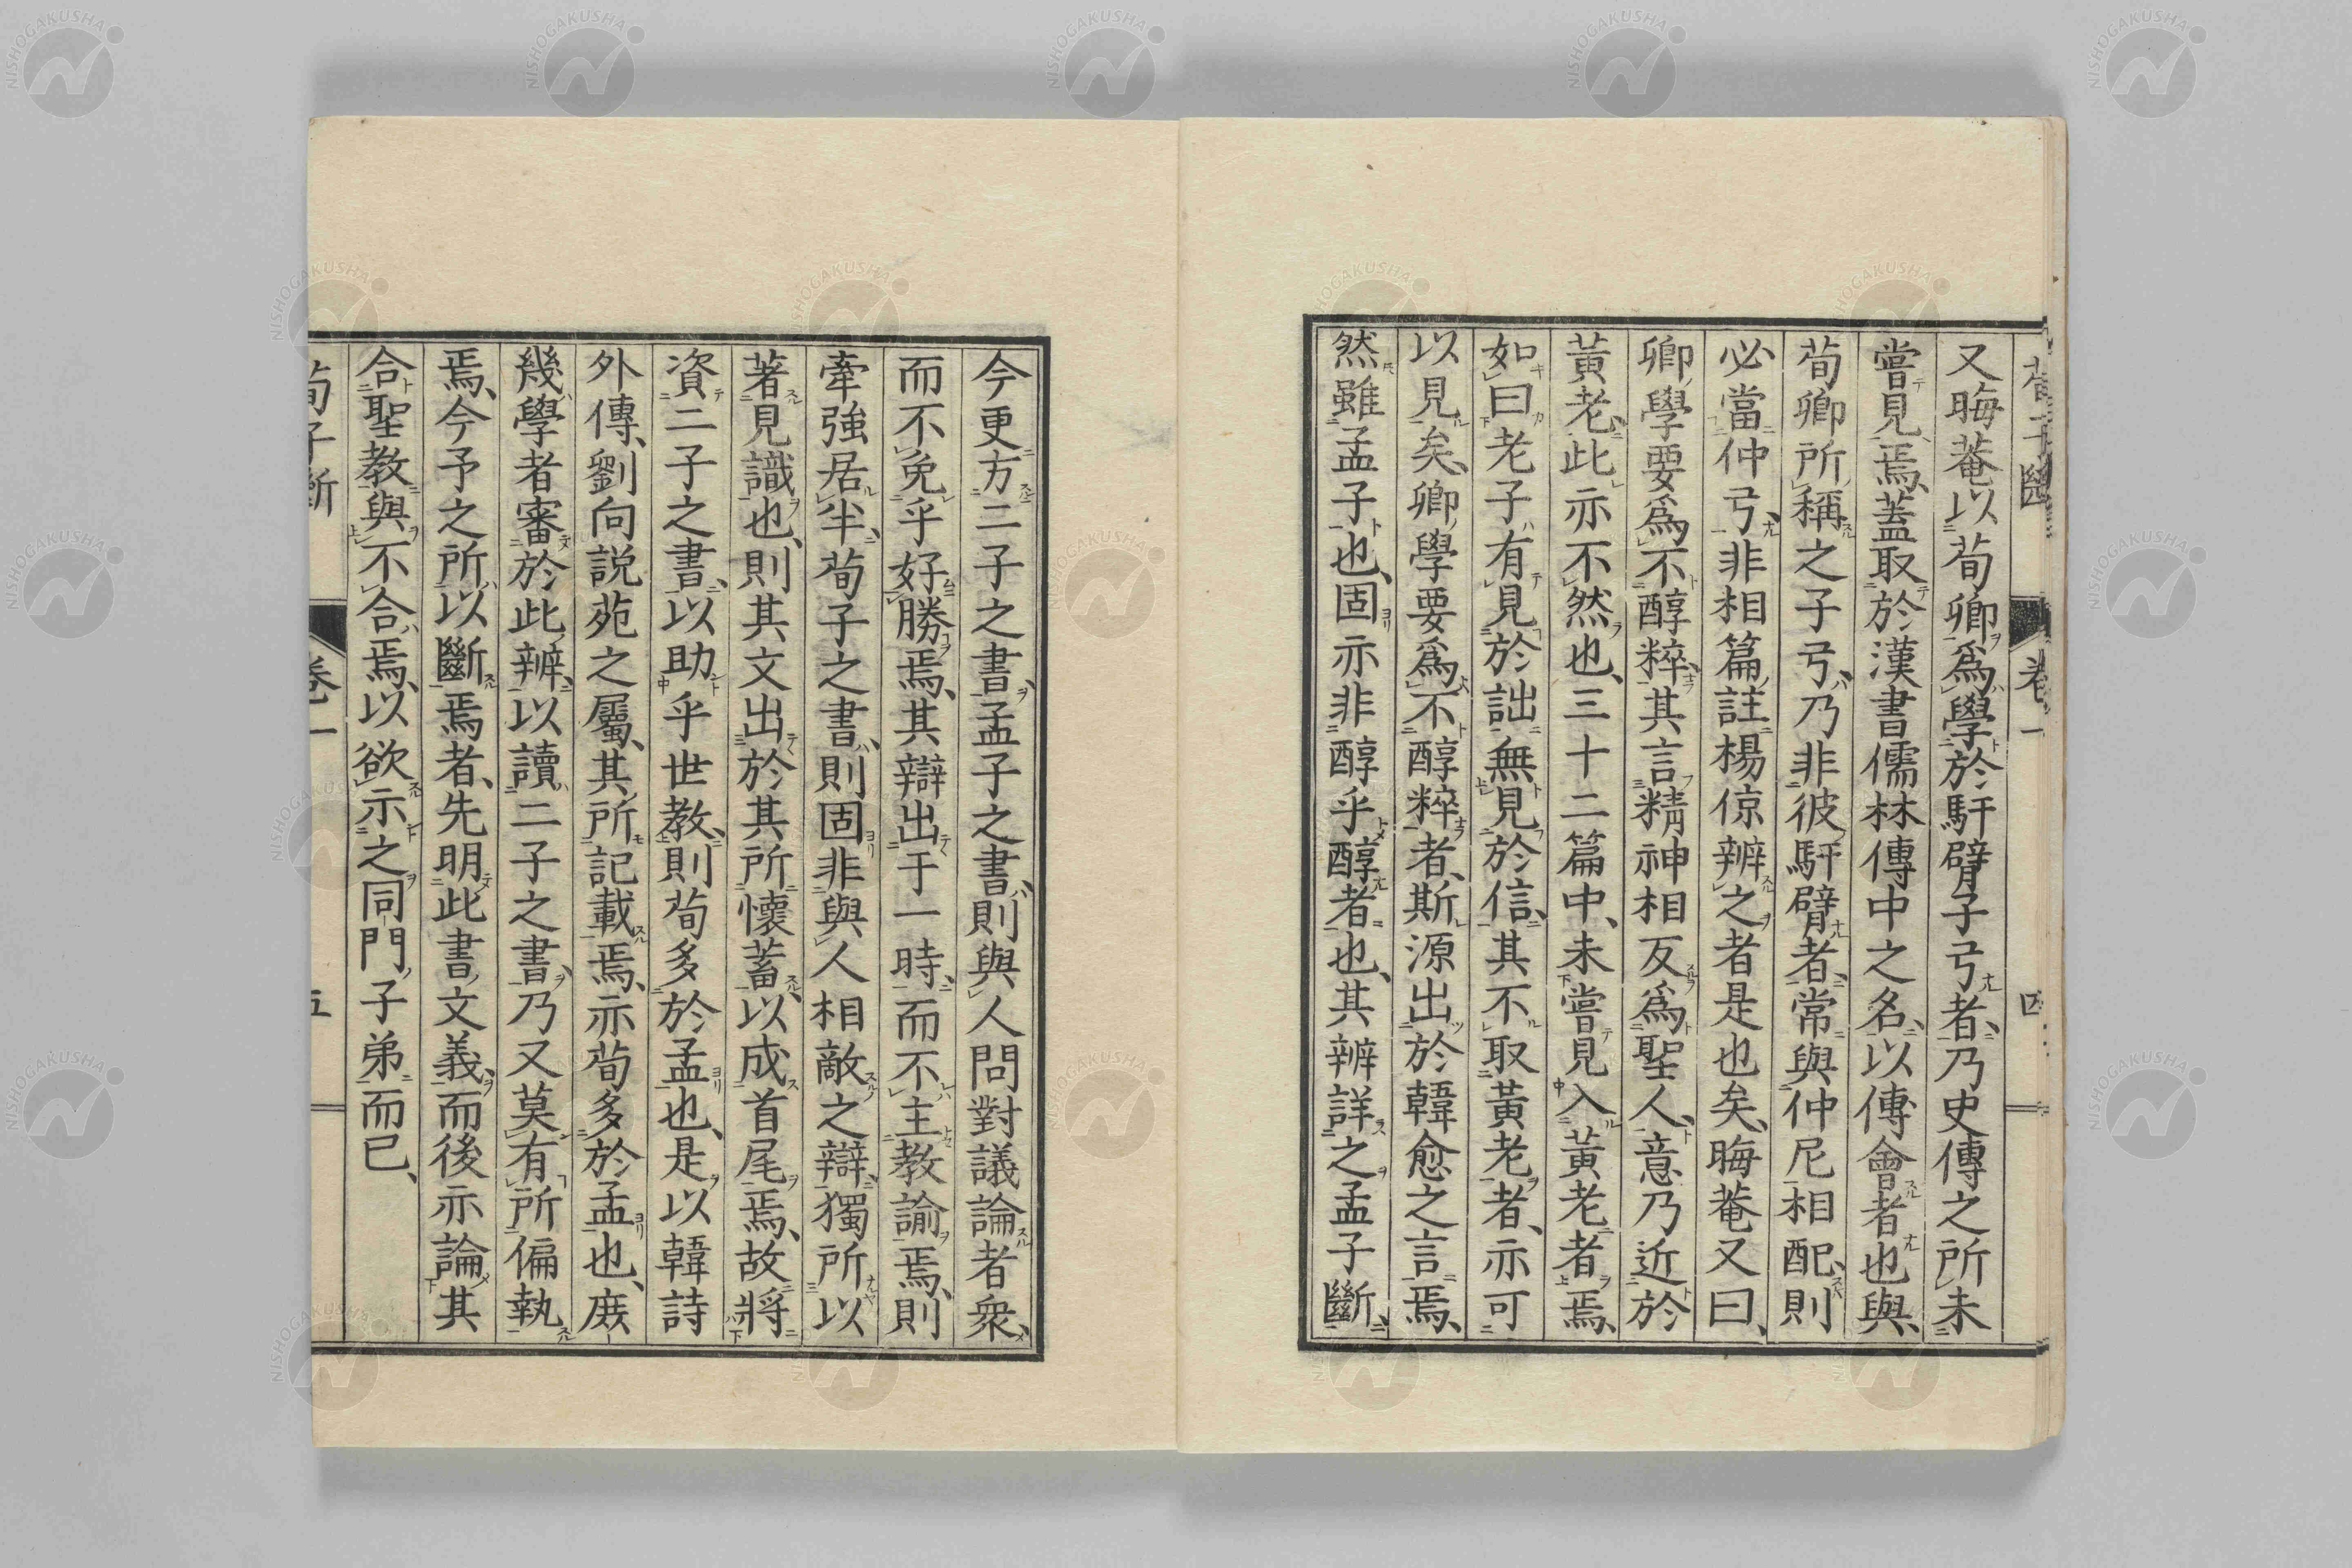 荀子斷 卷一 四
又晦菴以荀卿爲學於馯臂子弓者、乃史傳之所未
嘗見焉、蓋取於漢書儒林傳中之名、以傅會者也與、
荀卿所稱之子弓、乃非彼馯臂者、常與仲尼相配、則
必當仲弓、非相篇註楊倞辨之者是也矣、晦菴又曰、
卿學要爲不醇粹、其言精神相反爲聖人、意乃近於
黃老、此亦不然也、三十二篇中、未嘗見入黃老者焉、
如曰老子有見於詘無見於信、其不取黃老者、亦可
以見矣、卿學要爲不醇粹者、斯源出於韓愈之言焉、
然雖孟子也、固亦非醇乎醇者也、其辨詳之孟子斷、
今更方二子之書、孟子之書、則與人問對議論者衆、
而不免乎好勝焉、其辯出于一時、而不主教諭焉、則
牽強居半、荀子之書、則固非與人相敵之辯、獨所以
著見識也、則其文出於其所懷蓄、以成首尾焉、故將
資二子之書、以助乎世教、則荀多於孟也、是以韓詩
外傳、劉向説苑之屬、其所記載焉、亦荀多於孟也、庶
幾學者審於此辨、以讀二子之書、乃又莫有所偏執
焉、今予之所以斷焉者、先明此書文義、而後亦論其
合聖教與不合焉、以欲示之同門子弟而已、
荀子斷 卷一 五
NISHOGAKUSHA